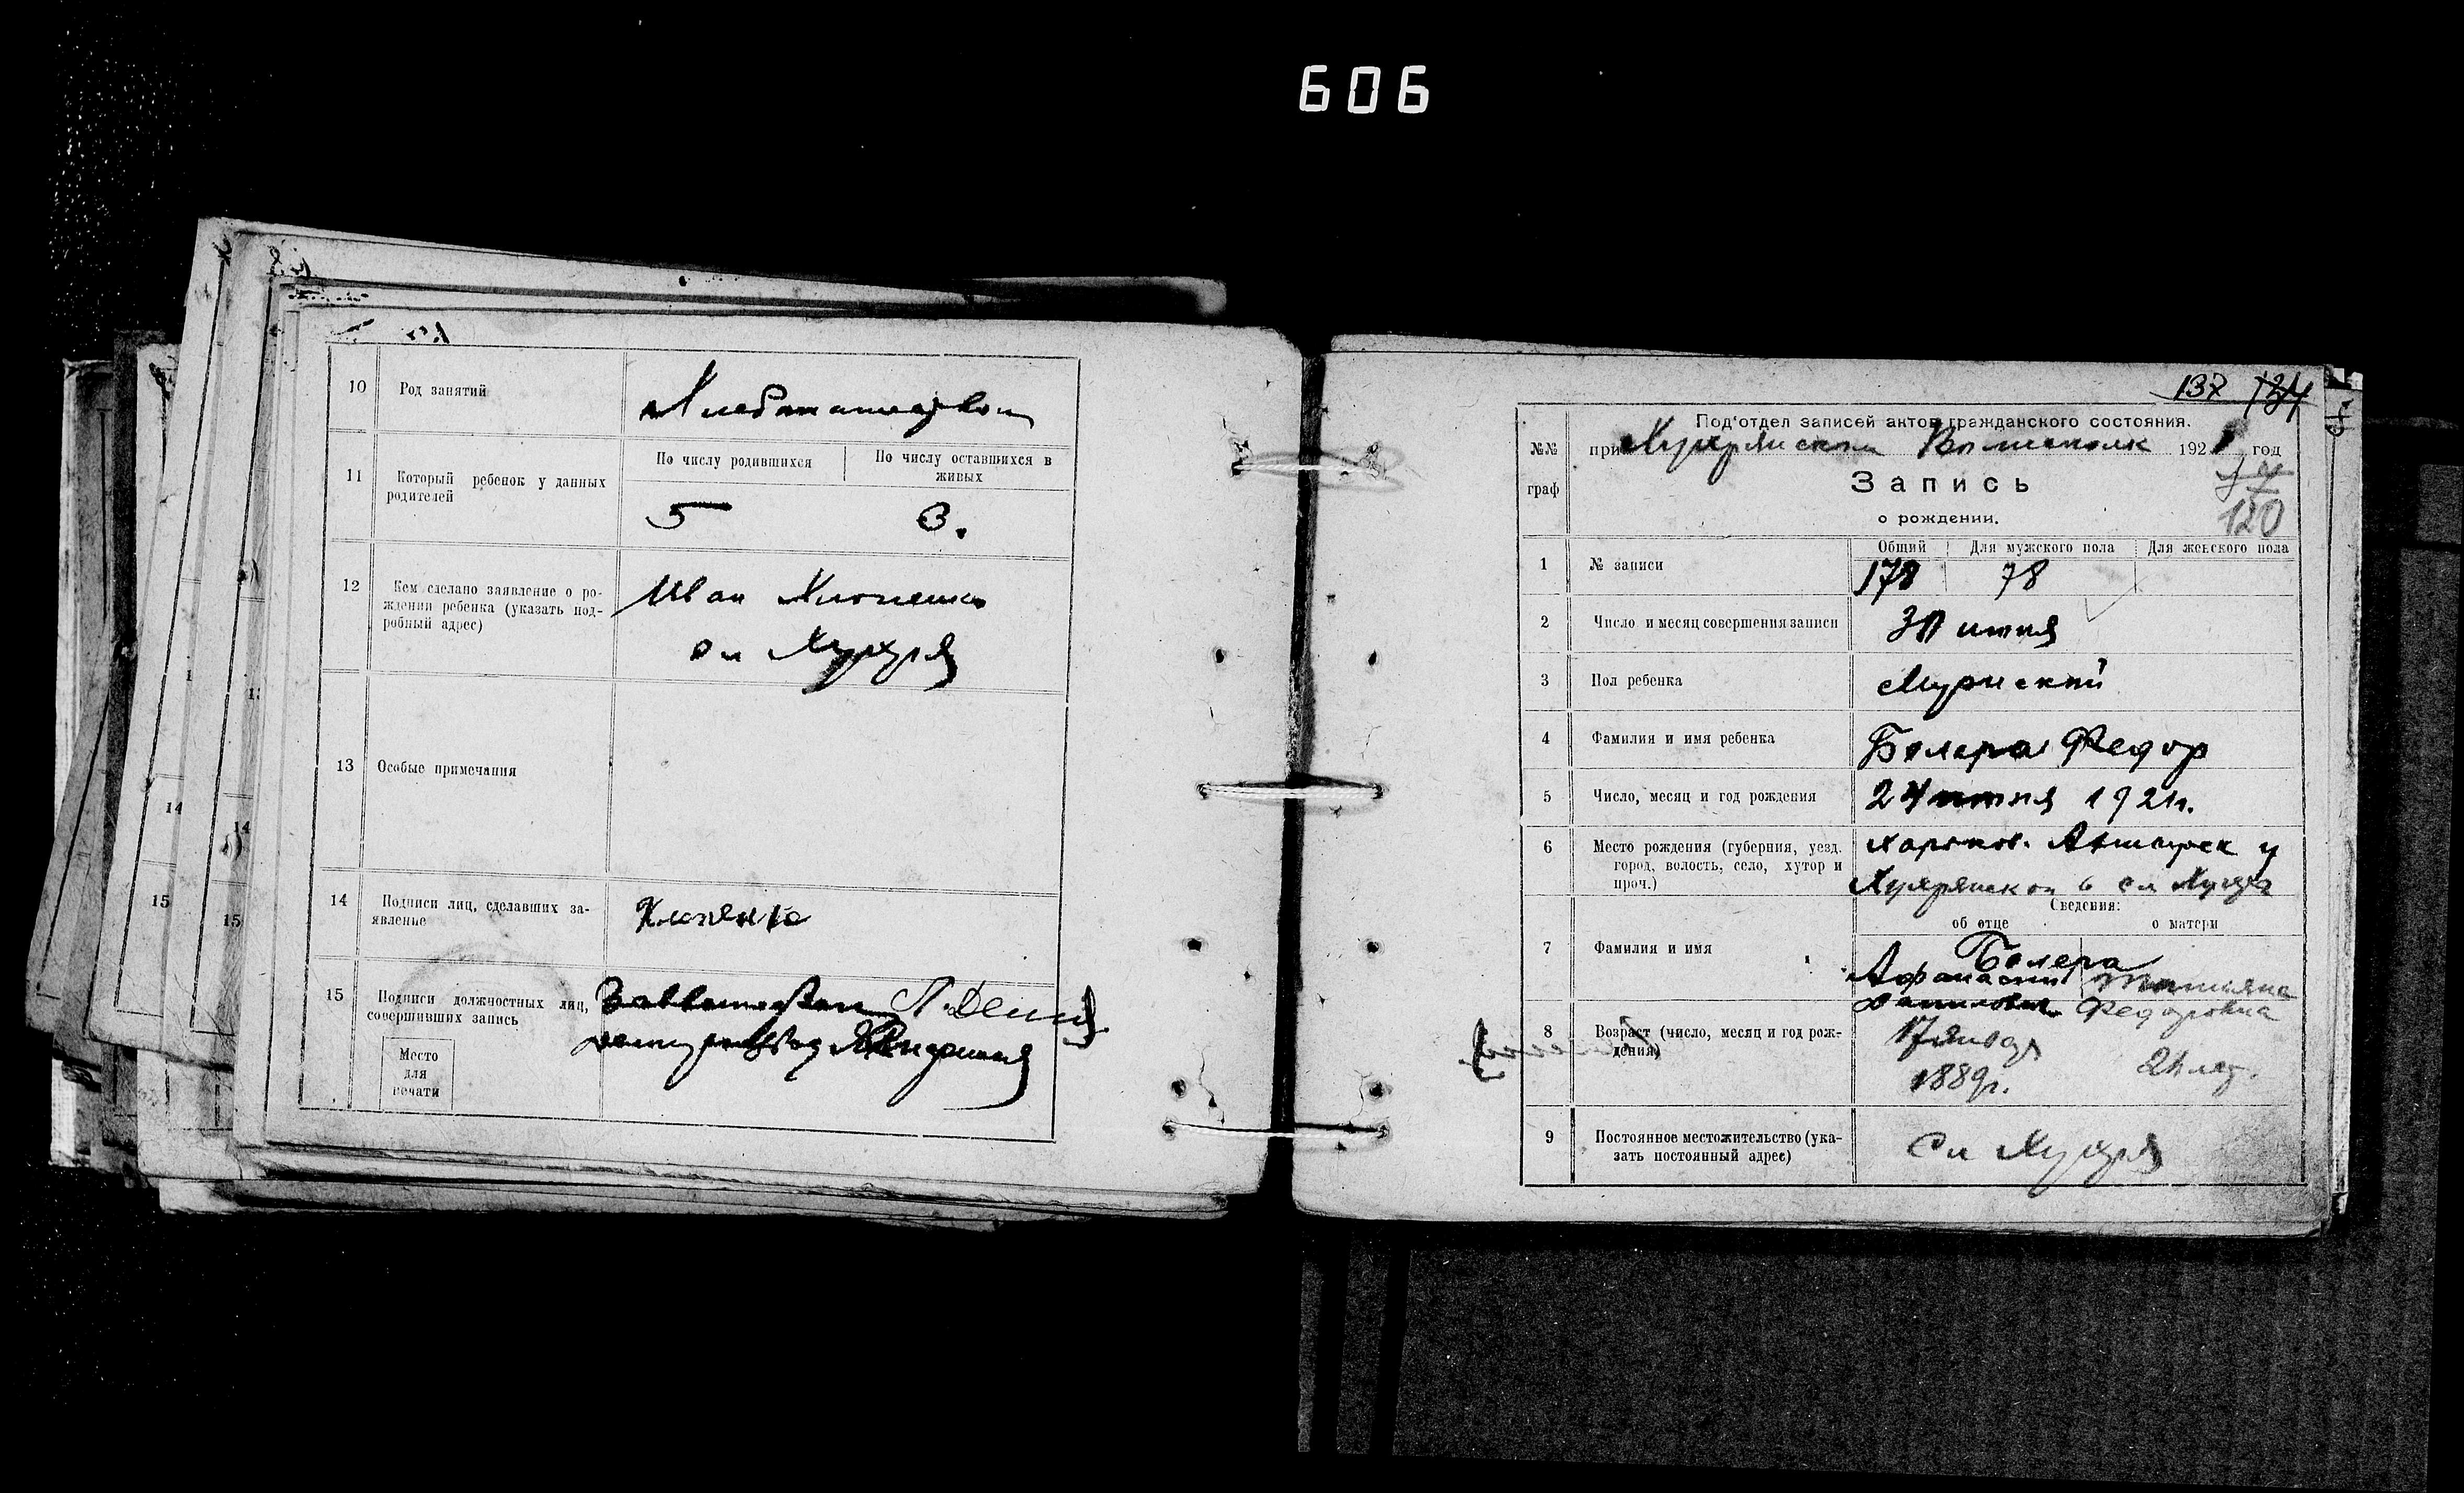 606
10 Род занятий
Хлебопашество
11 Который ребенок у данных родителей
По числу родившихся
По числу оставшихся в живых
5 3.
12 Кем сделано заявление о ро-
ждении ребенка (указать под-
робный адрес)
Иван
сл Хухря
13 Особые примечания
14 Подписи лиц, сделавших за-
явление
15 Подписи должностных лиц,
совершивших запись
Место
для
печати
137 134
Под'отдел записей актов гражданского состояния.
№№ граф
при Хухрянском 1921 год
Запись
120
о рождении.
Общий Для мужского пола Для женского пола
1 № записи 178 78
2 Число и месяц совершения записи 30 июня
3 Пол ребенка Мужской
4 Фамилия и имя ребенка Федор
5 Число, месяц и год рождения 24 июня 1921г.
6 Место рождения (губерния, уезд,
город, волость, село, хутор и
проч.)
Харьков. Ахтырск у
Хухрянской в сл Хухря
Сведения:
об отце о матери
7 Фамилия и имя
Афанасий Татьяна
Федоровна
8 Возраст (число, месяц и год рож-
дения)
17 января
1889г.
9 Постоянное местожительство (ука-
зать постоянный адрес)
Сл Хухря
14
15